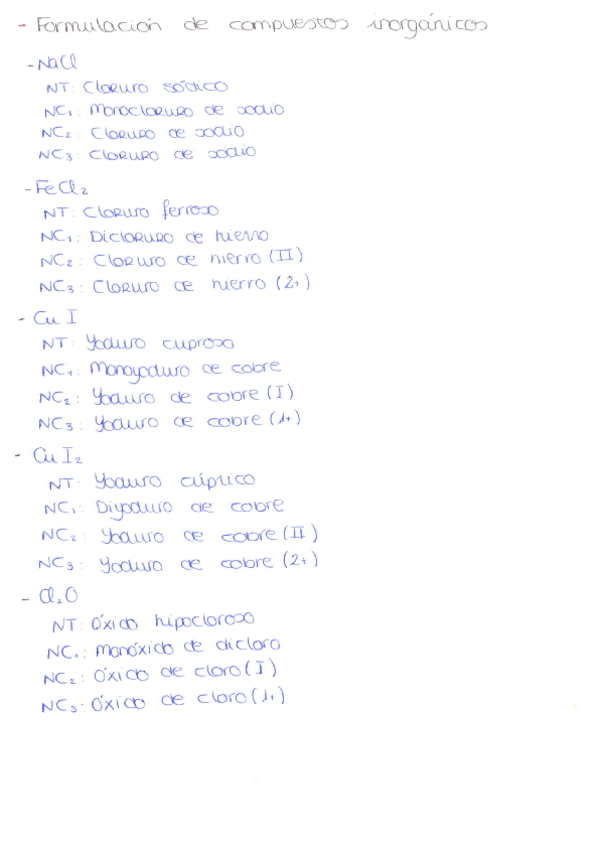 - Formulación de compuestos inorgánicos
- NaCl
NT: Cloruro sódico
NC₁: Monocloruro de sodio
NC₂: Cloruro de sodio
NC₃: Cloruro de sodio
- FeCl₂
NT: Cloruro ferroso
NC₁: Dicloruro de hierro
NC₂: Cloruro de hierro (II)
NC₃: Cloruro de hierro (2+)
- Cu I
NT: Yoduro cuproso
NC₁: Monoyoduro de cobre
NC₂: Yoduro de cobre (I)
NC₃: Yoduro de cobre (1+)
- Cu I₂
NT: Yoduro cúprico
NC₁: Diyoduro de cobre
NC₂: Yoduro de cobre (II)
NC₃: Yoduro de cobre (2+)
- Cl₂O
NT: Óxido hipocloroso
NC₁: Monóxido de dicloro
NC₂: Óxido de cloro (I)
NC₃: Óxido de cloro (1+)